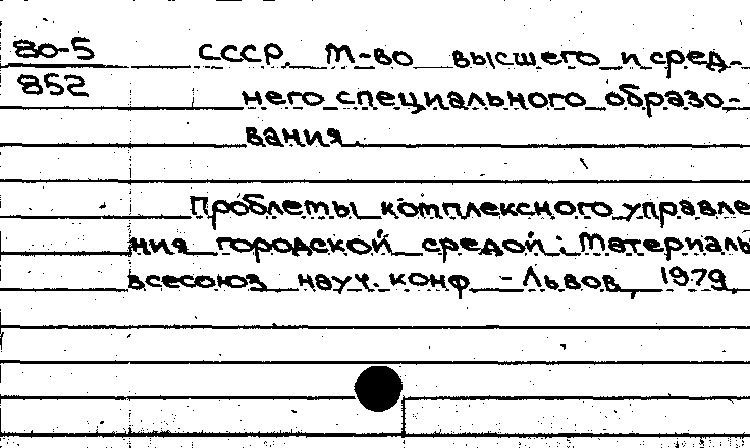 80-5 СССР. М-во высшего и сред-
852 него специального образо-
вания.
Проблемы комплексного управле
ния городской средой: Материалы
всесоюз науч. конф - Львов, 1979,